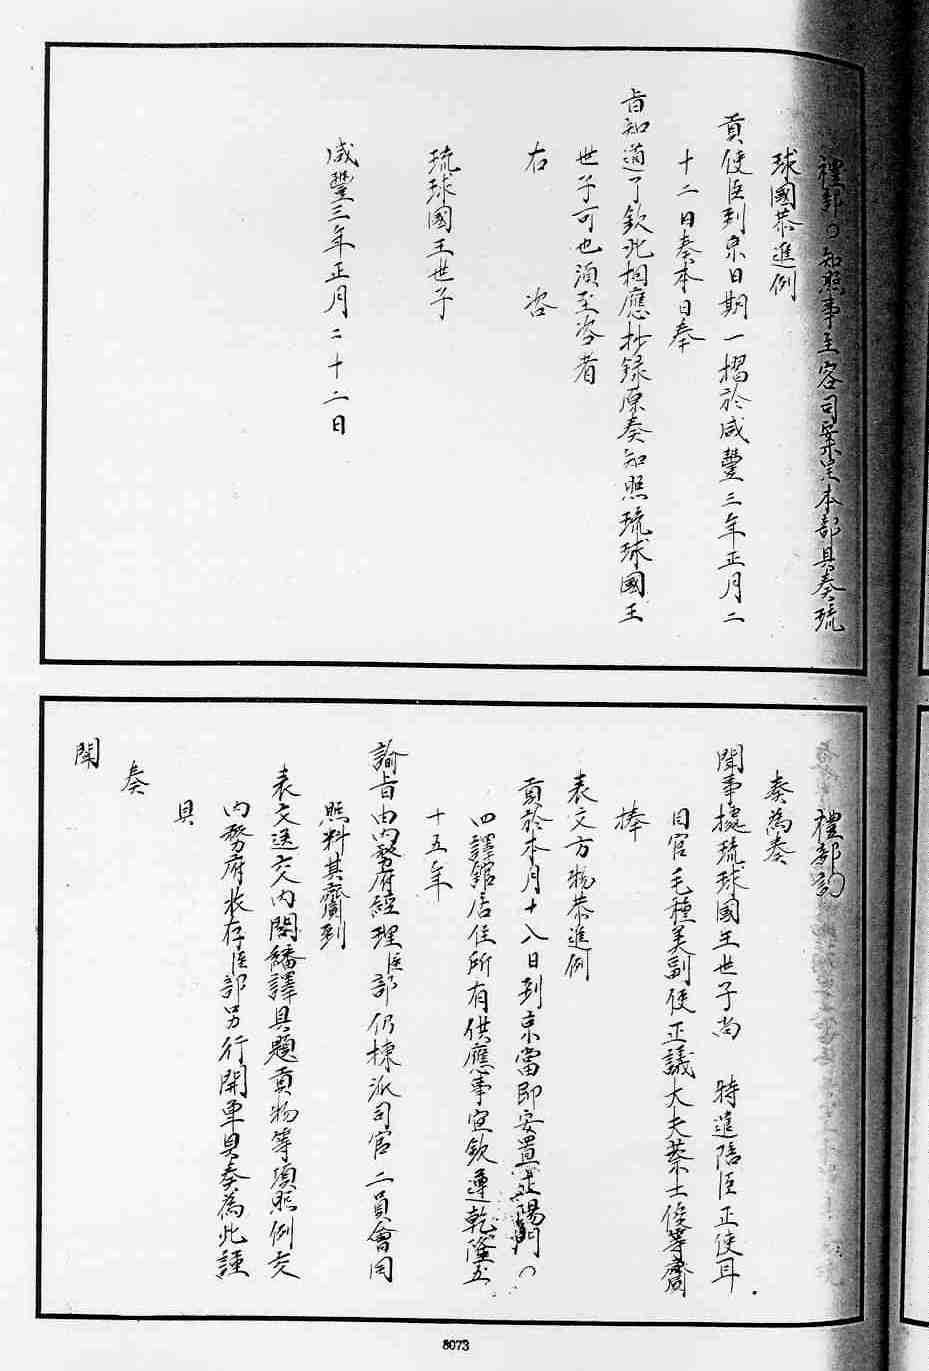 禮部為知照事主客司案呈本部具奏琉
球國恭進例
貢使臣到京日期一摺於咸豐三年正月二
十二日奏本日奉
旨知道了欽此相應抄錄原奏知照琉球國王
世子可也須至咨者
右　咨
琉球國王世子
咸豐三年正月二十二日
禮部謹
奏為奏
聞事據琉球國王世子尚　特遣陪臣正使耳
目官毛種美副使正議大夫蔡士俊等齎
捧
表文方物恭進例
貢於本月十八日到京當即安置正陽門
四譯館居住所有供應事宜欽遵乾隆五
十五年
諭旨由內務府經理臣部仍揀派司官二員會同
照料其齎到
表文送交內閣繙譯具題貢物等項照例交
內務府收存臣部另行開單具奏為此謹
具
奏
聞
8073